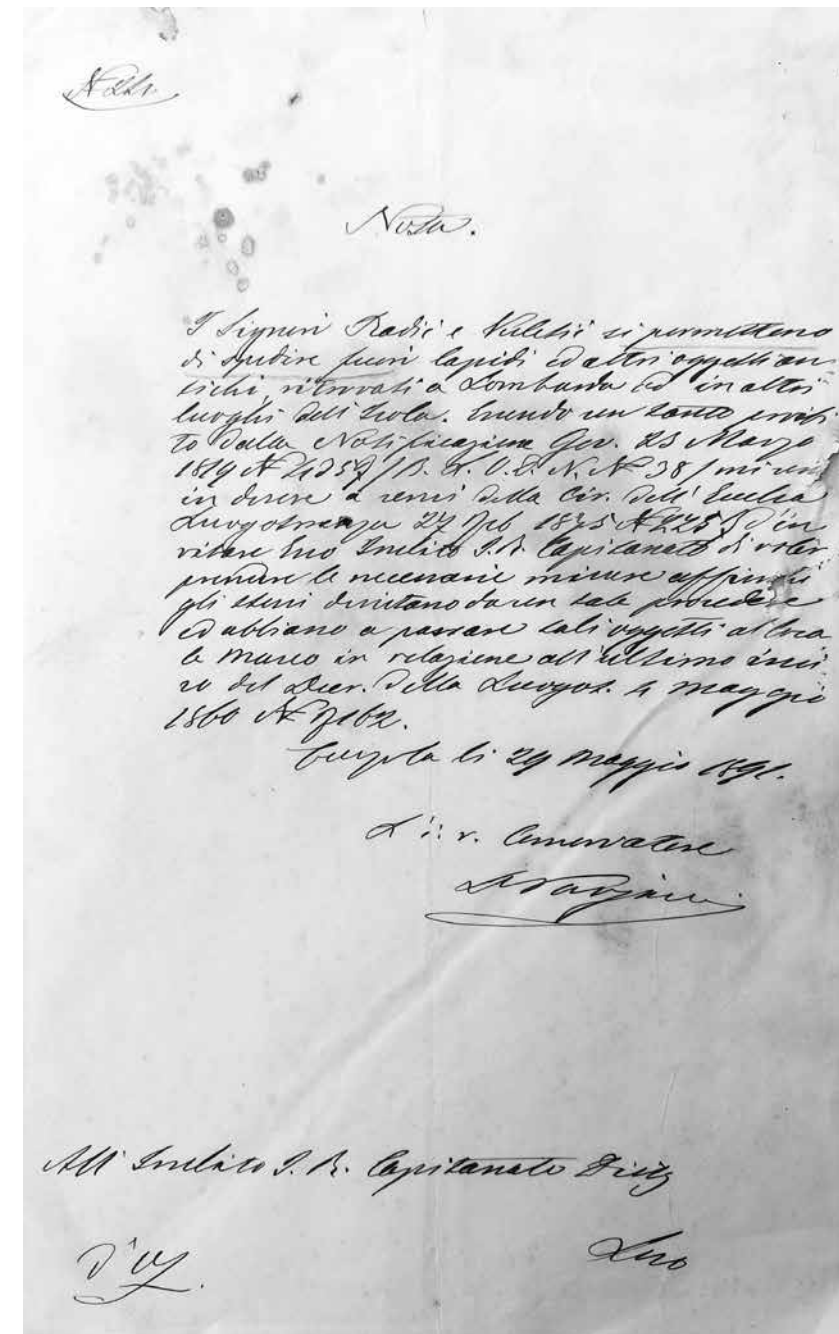 Nota.
I Signori Radić e Kuletić si permettono
di spedire fuori lapidi ed altri oggetti an-
tichi, ritrovati a Lombarda ed in altri
luoghi dell'Isola. Essendo un tanto proibi
to dalla Notificazione Gov. 23 Marzo
1819 N. 4257/
in dovere a sensi della Cir. dell' Eccelsa
Luogotenenza 27 Feb 1875 N. d'in
vitare Eso Inclito I. R. Capitanato di voler
prendere le necessarie misure affinchè
gli stessi desistano da un tale procedere
ed abbiano a passare tali oggetti al loca
le Museo in relazione all'ultimo inci
so del Decr. della Luogot. 4 Maggio
1860 N.
Curzola li 29 Maggio 1891.
L'i. r. Conservatore
All' Inclito I. R. Capitanato Distr